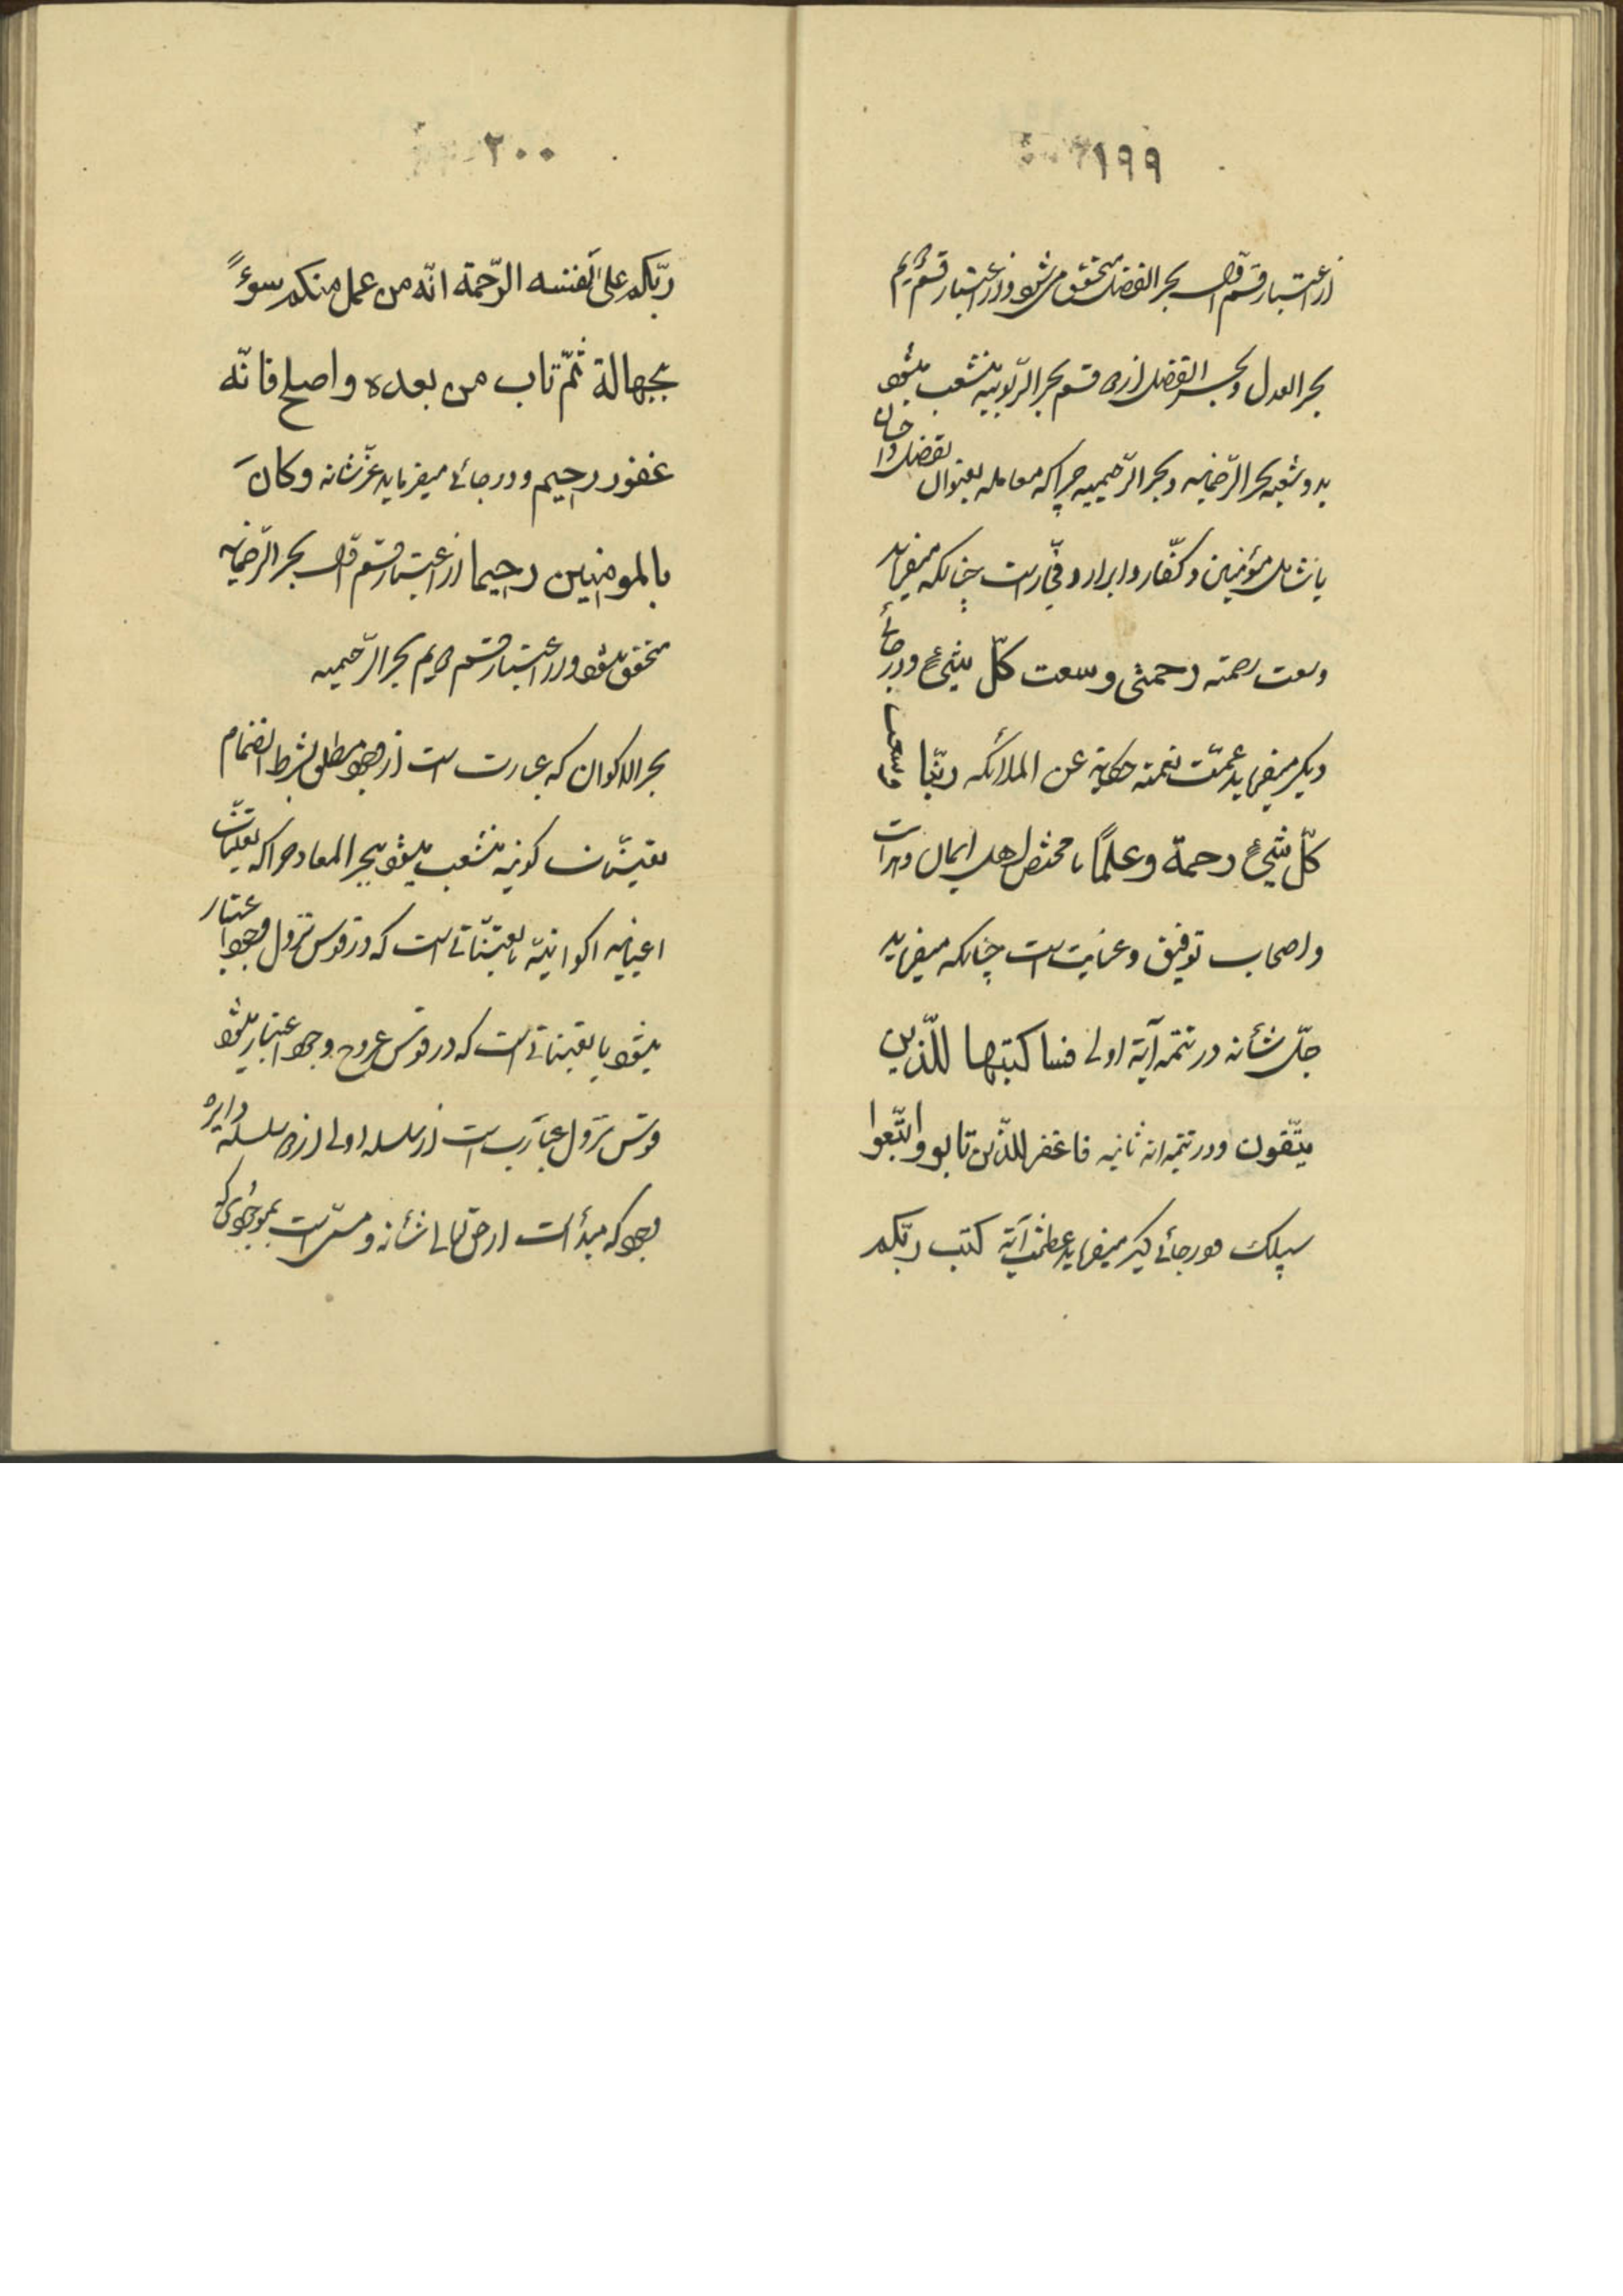 ١٩٩
از اعتبار قسم اول بحر الفضل متحقق میشود و از اعتبار قسم دویم
بحر العدل و بحر الفضل ازین قسم بحر الربوبیه منشعب میشود
بدو شعبه بحر الرحمانیه و بحر الرحیمیه چرا که معامله بعنوان تفضل و احسان
یا شامل مؤمنین و کفّار و ابرار و فجّار است چنانکه میفرماید
وسعت رحمته رحمتی وسعت کلّ شیءٍ و در جائے
دیگر میفرماید عمّت نعمته حکایة عن الملائکه ربّنا وسعت
کلّ شیءٍ رحمة وعلمًا یا مختص اهل ایمان و هدایت
و اصحاب توفیق و عنایت است چنانکه میفرماید
جلّ شأنه در تتمه آیة اولی فساکتبها للّذین
یتّقون و در تتمه آیه ثانیه فاغفر للّذین تابو واتّبعوا
سبیلک و در جائے دیگر میفرماید عظمت آیته کتب ربّکم
٢٠٠
ربّکم علیٰ نفسه الرّحمة انّه من عمل منکم سوءً
بجهالة ثمّ تاب من بعده واصلح فانّه
غفور رحیم و در جائے میفرماید عزّ شانه وکانَ
بالمومنین رحیما از اعتبار قسم اول بحر الرّحمانیه
متحقق میشود و از اعتبار قسم دویم بحر الرّحیمیه
بحر الاکوان که عبارت است از وجود مطلق بشرط انضمام
تعیّنات کونیه منشعب میشود ببحر المعاد چرا که تعیّنات
اعیانیه اکوانیّه یا تعیّناتے است که در قوس نزول وجود اعتبار
میشود یا تعیناتے است که در قوس عروج وجود اعتبار میشود
قوس نزول عبارت است از سلسله اولی از دو سلسلهٔ دایره
وجود که مبدأ است از حق تعالی شأنه و منتهی است بموجودی که